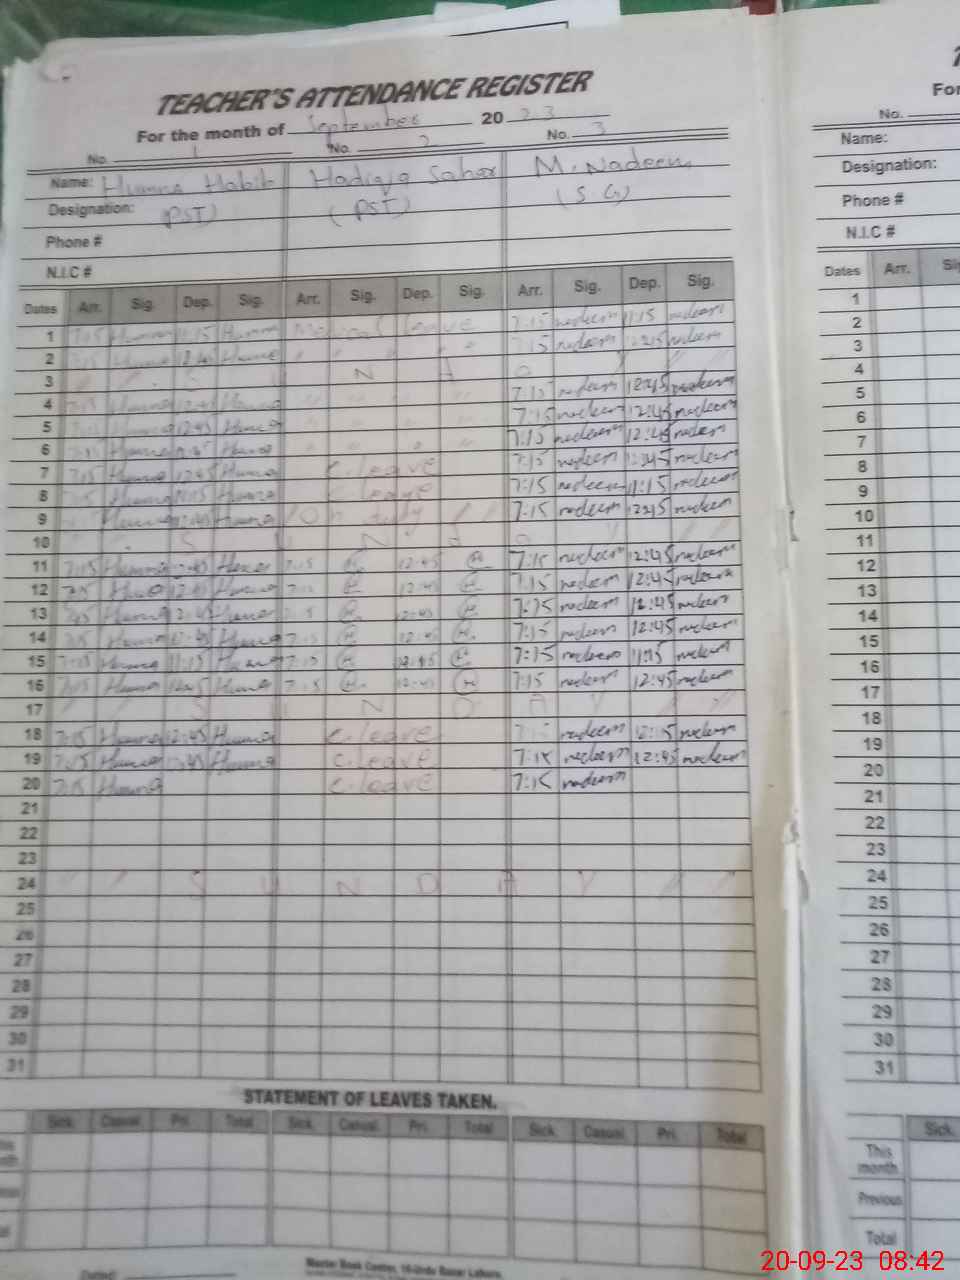 TEACHER'S ATTENDANCE REGISTER
For the month of September 20 23
No. 1 No. 2 No. 3
Name: Humna Habib Hadiqa Saher M. Nadeem
Designation: (PST) (PST) (S.G)
Phone #
N.I.C #
Dates Arr. Sig. Dep. Sig. Arr. Sig. Dep. Sig. Arr. Sig. Dep. Sig.
1 7:15 Humna 11:15 Humna Medical leave 7:15 nadeem 11:15 nadeem
2 7:15 Humna 12:45 Humna " " " " 7:15 nadeem 12:45 nadeem
3 S U N D A Y
4 7:15 Humna 12:45 Humna " " " " 7:15 nadeem 12:45 nadeem
5 7:15 Humna 12:45 Humna " " " " 7:15 nadeem 12:45 nadeem
6 7:15 Humna 12:45 Humna " " " " 7:15 nadeem 12:45 nadeem
7 7:15 Humna 12:45 Humna C.leave 7:15 nadeem 12:45 nadeem
8 7:15 Humna 11:15 Humna C.leave 7:15 nadeem 11:15 nadeem
9 Humna 12:45 Humna On duty 7:15 nadeem 12:45 nadeem
10 S U N D A Y
11 7:15 Humna 12:45 Humna 7:15 12:45 7:15 nadeem 12:45 nadeem
12 7:15 Humna 12:45 Humna 7:15 12:45 7:15 nadeem 12:45 nadeem
13 7:15 Humna 12:45 Humna 7:15 12:45 7:15 nadeem 12:45 nadeem
14 7:15 Humna 12:45 Humna 7:15 12:45 7:15 nadeem 12:45 nadeem
15 7:15 Humna 11:15 Humna 7:15 12:45 7:15 nadeem 11:15 nadeem
16 7:15 Humna 12:45 Humna 7:15 12:45 7:15 nadeem 12:45 nadeem
17 S U N D A Y
18 7:15 Humna 12:45 Humna C.leave 7:15 nadeem 12:45 nadeem
19 7:15 Humna 12:45 Humna C.leave 7:15 nadeem 12:45 nadeem
20 7:15 Humna C.leave 7:15 nadeem
21
22
23
24 S U N D A Y
25
26
27
28
29
30
31
STATEMENT OF LEAVES TAKEN.
Sick. Casual. Pri. Total Sick. Casual. Pri. Total Sick. Casual. Pri. Total
For
No.
Name:
Designation:
Phone #
N.I.C #
Dates Arr.
1
2
3
4
5
6
7
8
9
10
11
12
13
14
15
16
17
18
19
20
21
22
23
24
25
26
27
28
29
30
31
Sick.
This month
Previous
Total
Master Book Center, 16-Urdu Bazar Lahore.
20-09-23 08:42